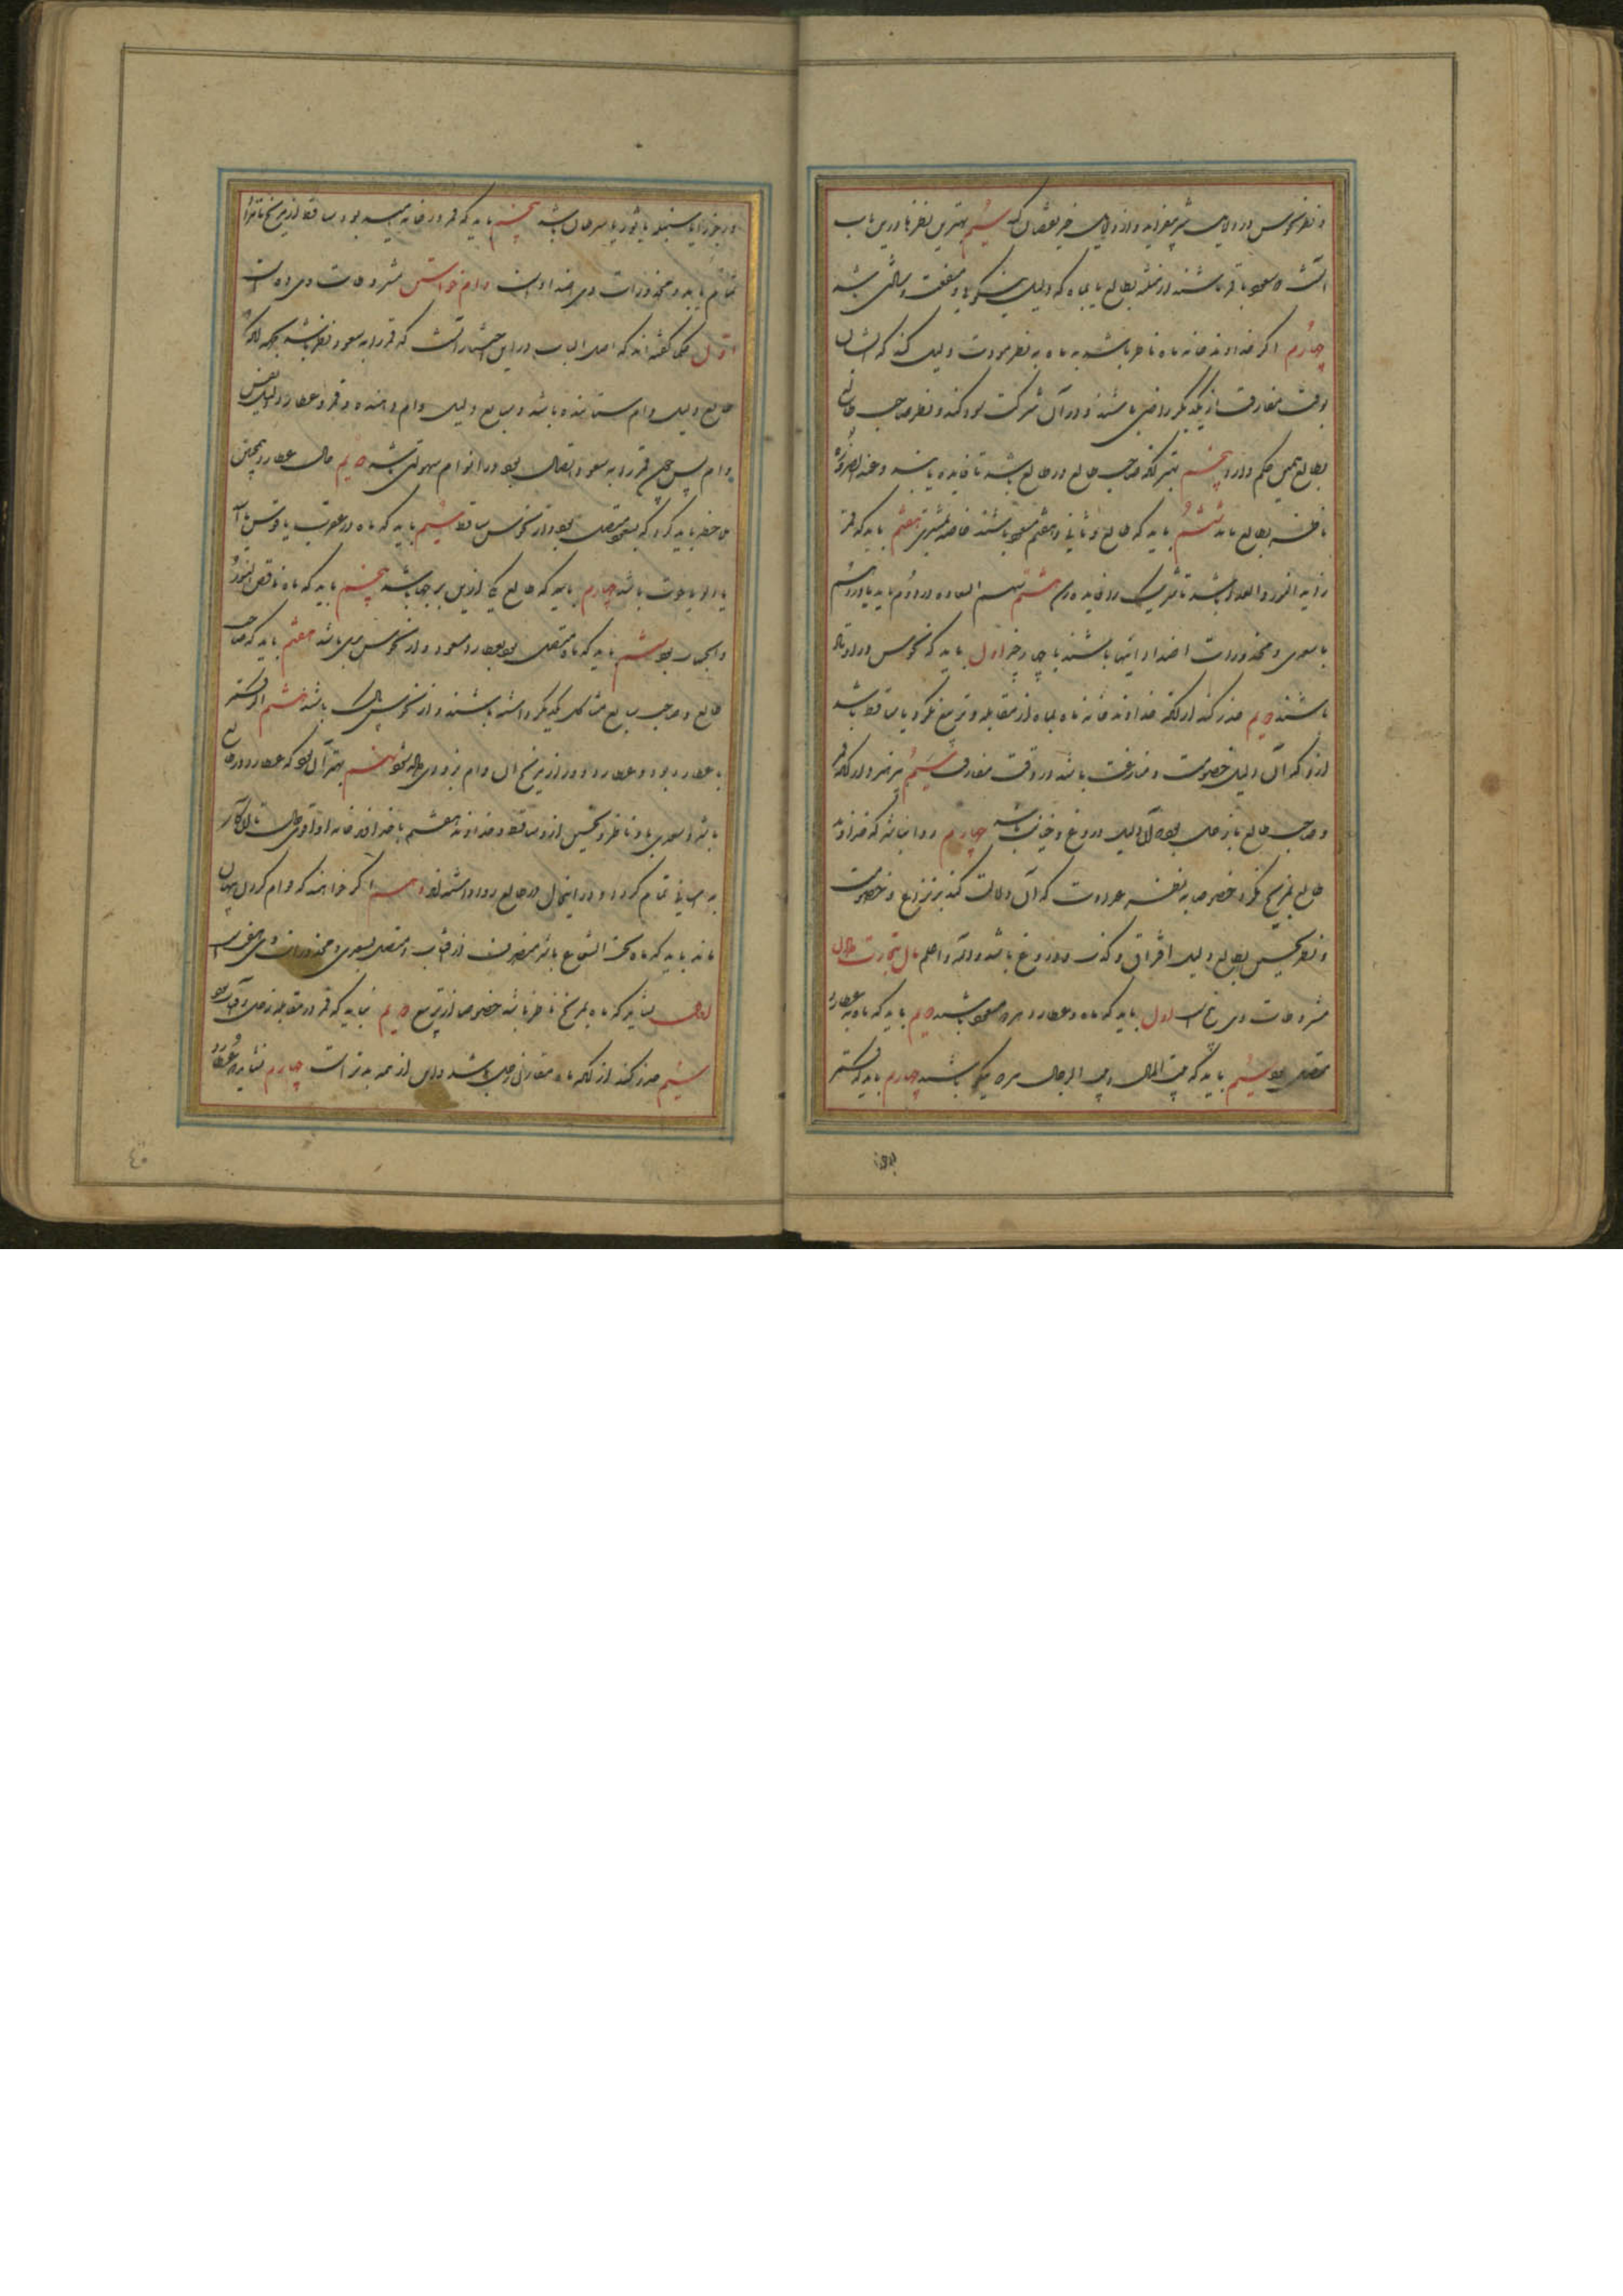 و نظر نحوس در دلایل شر بیفزاید و از دلایل خیر نقصان کند سیم بهترین نظرها درین باب
آنست که سعود باقر باشند از تثلیث بطالع یا بماه که دلیل نیکویی و منفعت و راستی باشد
چهارم اگر خداوند خانه ماه ناظر باشد به ماه به نظر مودت دلیل کند که ایشان
بوقت مفارقت از یکدیگر راضی باشند و در آن شرکت سود کنند و نظر صاحب طالع
بطالع همین حکم دارد پنجم بهتر آنکه صاحب طالع در طالع باشد تا فایده یابند و عند الضرورة
ناظر بطالع باید ششم باید که طالع و ثانی و هفتم مسعود باشند خاصه بمشتری هفتم باید که قمر
زاید النور و العدد باشد تا شریک را فایده رسد هشتم سهم السعاده در دوم باید یا در دهم
با سعدی و محذورات اضداد اینها باشند با چهار چیز اول باید که نحوس در اوتاد
باشند دویم حذر کند از آنکه خداوند خانه ماه بماه از مقابله و تربیع نگرد یا ساقط باشد
از و که آن دلیل خصومت و منازعت باشد در وقت مفارقت سیم بپرهیزد از آنکه قمر
و صاحب طالع با زحل بود که آن دلیل دروغ و خیانت باشد چهارم روا نباشد که خداوند
طالع بمریخ نگرد خصوصا به نظر عداوت که آن دلالت کند بر نزاع و خصومت
و نظر نحس بطالع دلیل افتراق و کذب و دروغ باشد والله اعلم مال بتجارت دادن
مشروطات وی پنج است اول باید که ماه و عطارد هر دو مسعود باشند دویم باید که ماه به عطارد
متصل بود سیم باید که بیت المال و بیت الرجا هر دو نیکو باشند چهارم باید که قمر
در جوزا یا سنبله یا ثور یا سرطان باشد پنجم باید که قمر در خانه بود و ساقط از مریخ تا
تمام یابد و محذورات وی اضداد اینست وام خواستن مشروطات وی ده است
اول حکما گفته‌اند که اصل الباب در این اختیار آنست که قمر را به سعود نظر باشد بجهة آنکه
طالع دلیل وام ستاننده باشد و سابع دلیل وام دهنده و قمر و عطارد دلیل نفس
وام پس چون قمر را به سعود اتصال بود در ادای وام سهولتی باشد دویم حال عطارد همچنین
ملاحظه باید کرد که بسعود متصل بود و از نحوس ساقط سیم باید که ماه در عقرب یا قوس یا
یا دلو یا حوت باشد چهارم باید که طالع یکی ازین برجها باشد پنجم باید که ماه ناقص النور
و الحساب بود ششم باید که ماه متصل بود بعطارد مسعود و از نحوس بری باشد هفتم باید که صاحب
طالع و صاحب سابع مشاکل یکدیگر داشته باشند و از نحوس پاک باشند هشتم اگر قمر
با عطارد بود و عطارد دور از مریخ آن وام بزودی جدا شود نهم بهتر آن بود که عطارد در طالع
باشد و سعدی باو ناظر و نحس از و ساقط و خداوند هفتم با خداوند خانه او
به آسانی تمام گردد و در این حال در طالع روا داشته‌اند دهم اگر خواهند که وام کردن پنهان
ماند باید که ماه تحت الشعاع باشد منصرف از آفتاب و متصل بسعدی و محذورات وی هفت است
اول نشاید که ماه بمریخ ناظر باشد خصوصا از تربیع دویم نباید که قمر در مقابله زحل و آفتاب بود
سیم حذر کند از آنکه ماه مقارن زحل باشد و این از همه بدتر است چهارم نشاید که عطارد